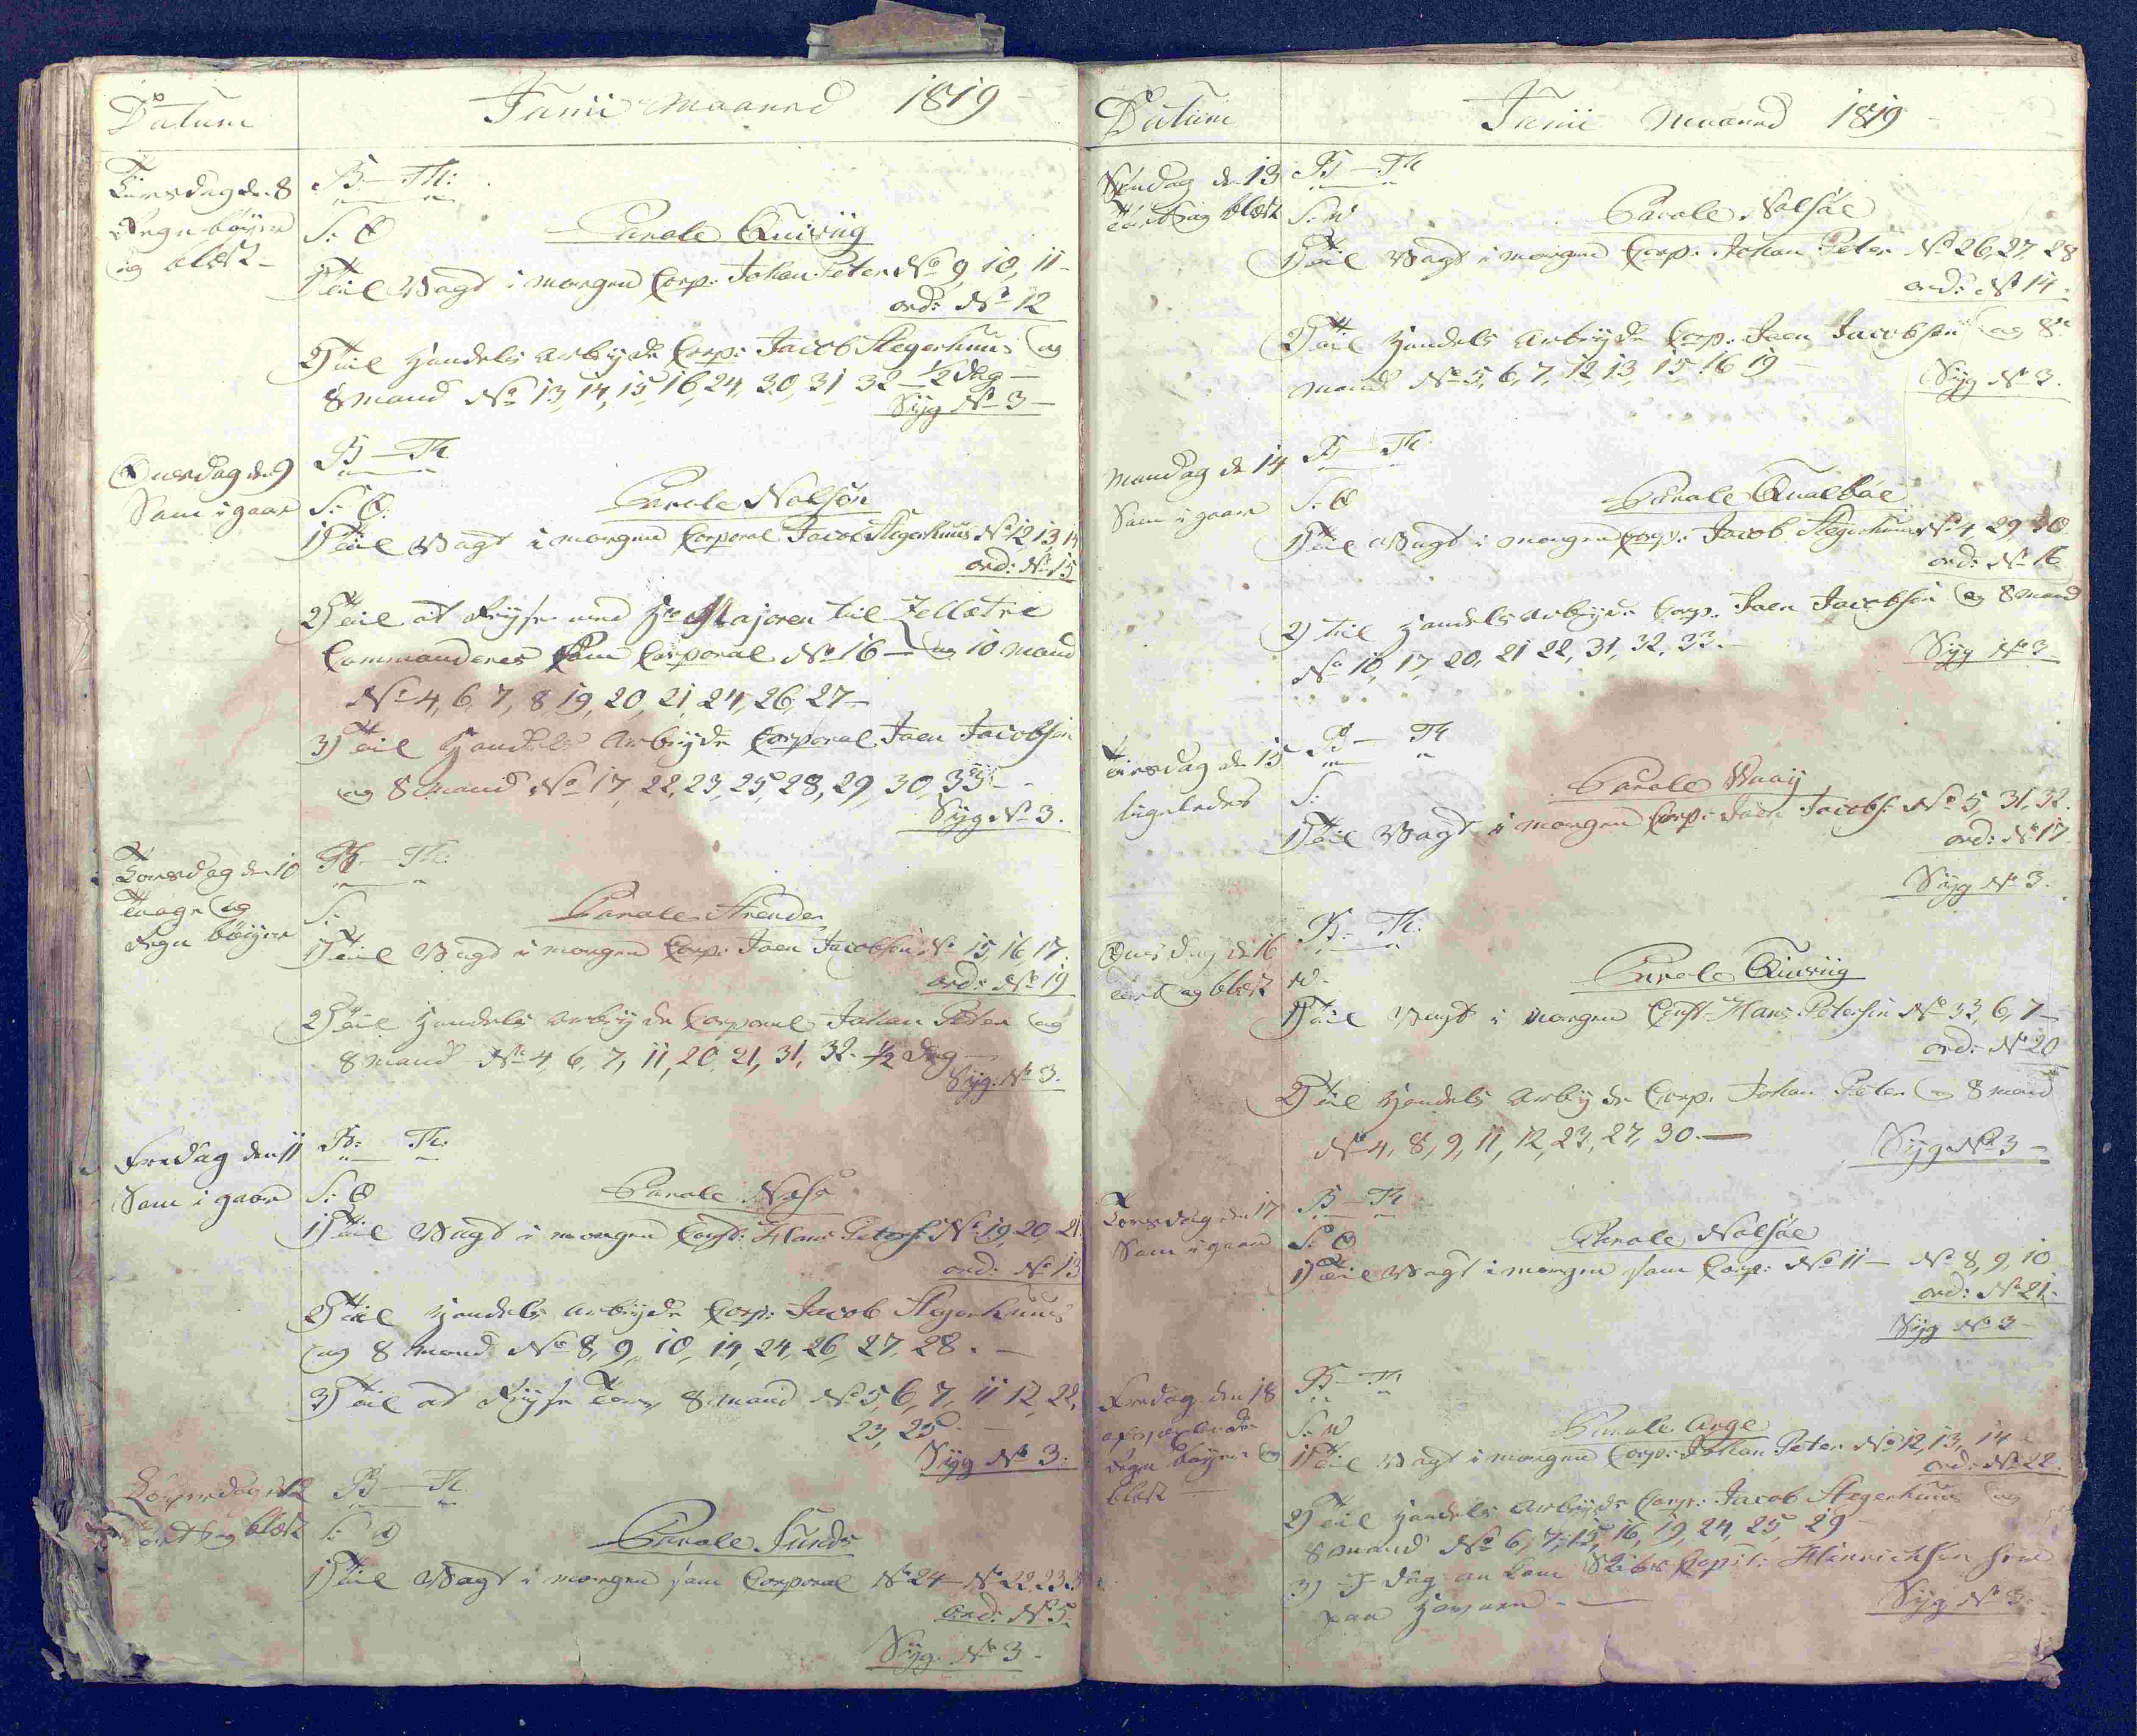 Datum
Junii Maaned 1819
Tiirsdag den 8
B:— Th:
Regn böyer
S: O
Parole Quiviig
og blæst —
1) Til Vagt i morgen Corp: Johan Peter No 9, 10, 11 —
ord: No 12
2) Til Handels Arbeyde Corp: Jacob Stegerhuus og
8 Mand No 13, 14, 15, 16, 24, 30, 31, 32 — ½ dag —
Syg No 3 —
Onsdag den 9
B — Th
Som i gaar
S: O.
Parole Nolsöe
1) Til Vagt i morgen Corporal Jacob Stegerhuus No 12, 13, 14
ord: No 15
2) Til at Reyse med Hr Majoren til
Commanderes som Corporal No 16 — og 10 Mand
No 4, 6, 7, 8, 19, 20, 21, 24, 26, 27 —
3) Til Handels Arbeyde Corporal Joen Jacobsen
og 8 Mand No 17, 22, 23, 25, 28, 29, 30, 33 —
Syg No 3.
Torsdag den 10
B — Th:
Taage og
S:
Parole Strender
Regn böiger
1) Til Vagt i morgen Corp: Joen Jacobsen No 15, 16, 17.
ord: No 19
2) Til Handels Arbeyde Corporal Johan Peter og
8 Mand No 4, 6, 7, 11, 20, 21, 31, 32. ½ Dag —
Syg: No 3.
Fredag den 11
B: Th:
Som i gaar
S: O
Parole Næs
1) Til Vagt i morgen Const: Hans Peters: No 19, 20, 21.
ord: No 13
2) Til Handels Arbeyde Corp: Jacob Stegerhuus
og 8 Mand No 8, 9, 10, 14, 24, 26, 27, 28. —
3) Til at Reyse 8 Mand No 5, 6, 7, 11, 12, 22,
23, 25. —
Syg No 3.
Löverdag d 12
B — Th.
Tört og blæst
S: O
Parole Sund
1) Til Vagt i morgen som Corporal No 24 — No 22, 23, 3
ord: No 5.
Syg. No 3 —
Datum
Junii Maaned 1819
Söndag den 13
B — Th
Tört og blæst
S: W
Parole Nolsöe
1) Til Vagt i morgen Corp: Johan Peter No 26, 27, 28
ord: No 14.
2) Til Handels Arbeyde Corp: Joen Jacobsen og 8
Mand No 5, 6, 7, 12, 13, 15, 16, 19 —
Syg No 3.
Mandag d: 14
B — Th
Som i gaar
S: O
Parole Qualböe
1) Til Vagt i morgen Corp: Jacob Stegerhuus No 4, 29, 30
ord: No 16
2) Til Handels Arbeyde Corp: Joen Jacobsen og 8 Mand
No 10, 17, 20, 21, 22, 31, 32, 33. —
Syg No 3
Tirsdag den 15
B — Th
ligeledes
S:
Parole Vaag
1) Til Vagt i morgen Corp: Joen Jacobs: No 5, 31, 32.
ord: No 17
Syg No 3.
Onsdag d 16
B — Th:
tört og blæst
W.
Parole Quiviig
1) Til Vagt i morgen Const: Hans Petersen No 33, 6, 7 —
ord: No 20
2) Til Handels Arbeyde Corp: Johan Peter og 8 Mand
No 4, 8, 9, 11, 12, 23, 27, 30. —
Syg No 3 —
Torsdag den 17
B — Th
Som i gaar
S: O
Parole Nolsöe
1) Til Vagt i morgen som Corp: No 11 — No 8, 9, 10
ord: No 21.
Syg No 3 —
Fredag den 18
B — Th
S: W
Parole Arge
Regn böyer og
1) Til Vagt i morgen Corp: Johan Peter No 12, 13, 14
ord: No 22.
blæst —
2) Til Handels Arbeyde Corp: Jacob Stegerhuus og
8 Mand No 6, 7, 15, 16, 19, 24, 25, 29
3) I Dag an kom Skibs Capit: Hinrichsen her
paa Havnen — —
Syg No 3.